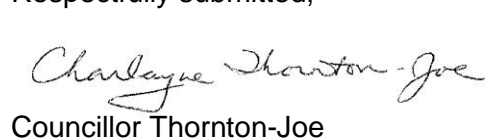 Respectfully submitted,
Charlayne Thornton-Joe
Councillor Thornton-Joe